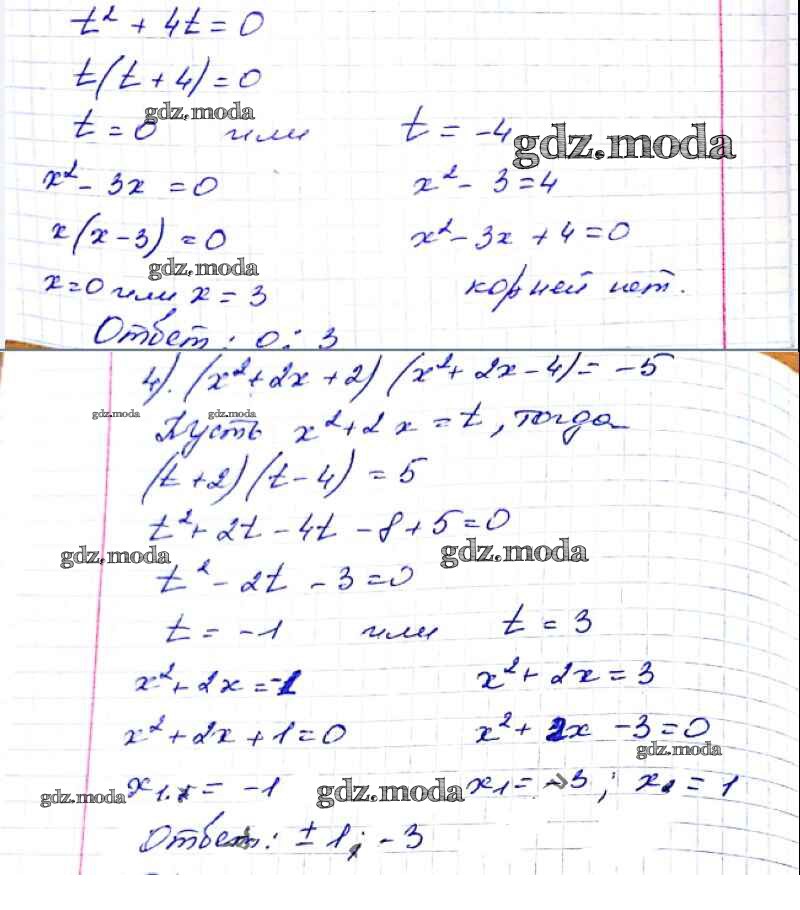 t² + 4t = 0
t(t + 4) = 0
gdz.moda
t = 0 или t = -4
gdz.moda
x² - 3x = 0 x² - 3 = 4
x(x - 3) = 0 x² - 3x + 4 = 0
gdz.moda
x = 0 или x = 3 корней нет.
Ответ: 0; 3
4). (x² + 2x + 2) (x² + 2x - 4) = -5
gdz.moda gdz.moda
Пусть x² + 2x = t, тогда
(t + 2) (t - 4) = 5
t² + 2t - 4t - 8 + 5 = 0
gdz.moda gdz.moda
t² - 2t - 3 = 0
t = -1 или t = 3
x² + 2x = -1 x² + 2x = 3
x² + 2x + 1 = 0 x² + 2x - 3 = 0
gdz.moda
gdz.moda gdz.moda
= -1 x₁ = -3; = 1
Ответ: ± 1; -3